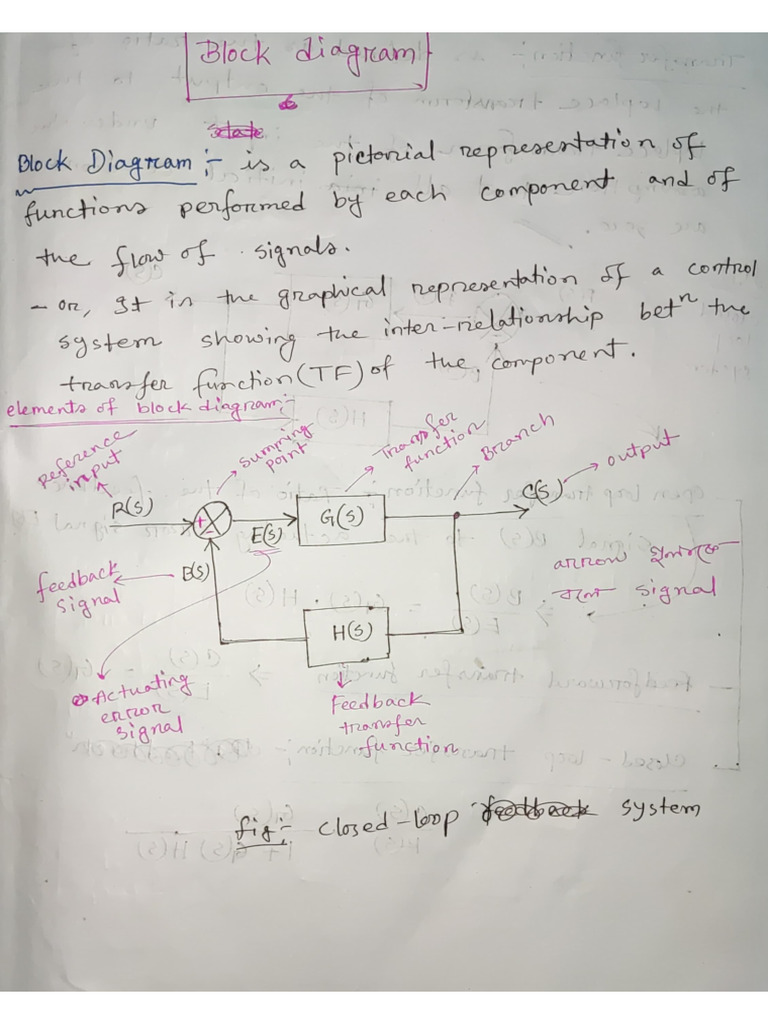 Block diagram
Block Diagram :- is a pictorial representation of
functions performed by each component and of
the flow of signals.
- or, It is the graphical representation of a control
system showing the inter-relationship betⁿ the
transfer function (TF) of the component.
elements of block diagram:-
Reference
input
Summing
point
Transfer
function
Branch
output
R(s)
+
-
E(s)
G(s)
C(s)
feedback
signal
B(s)
H(s)
arrow
signal
Actuating
error
signal
Feedback
transfer
function
fig:- closed-loop system